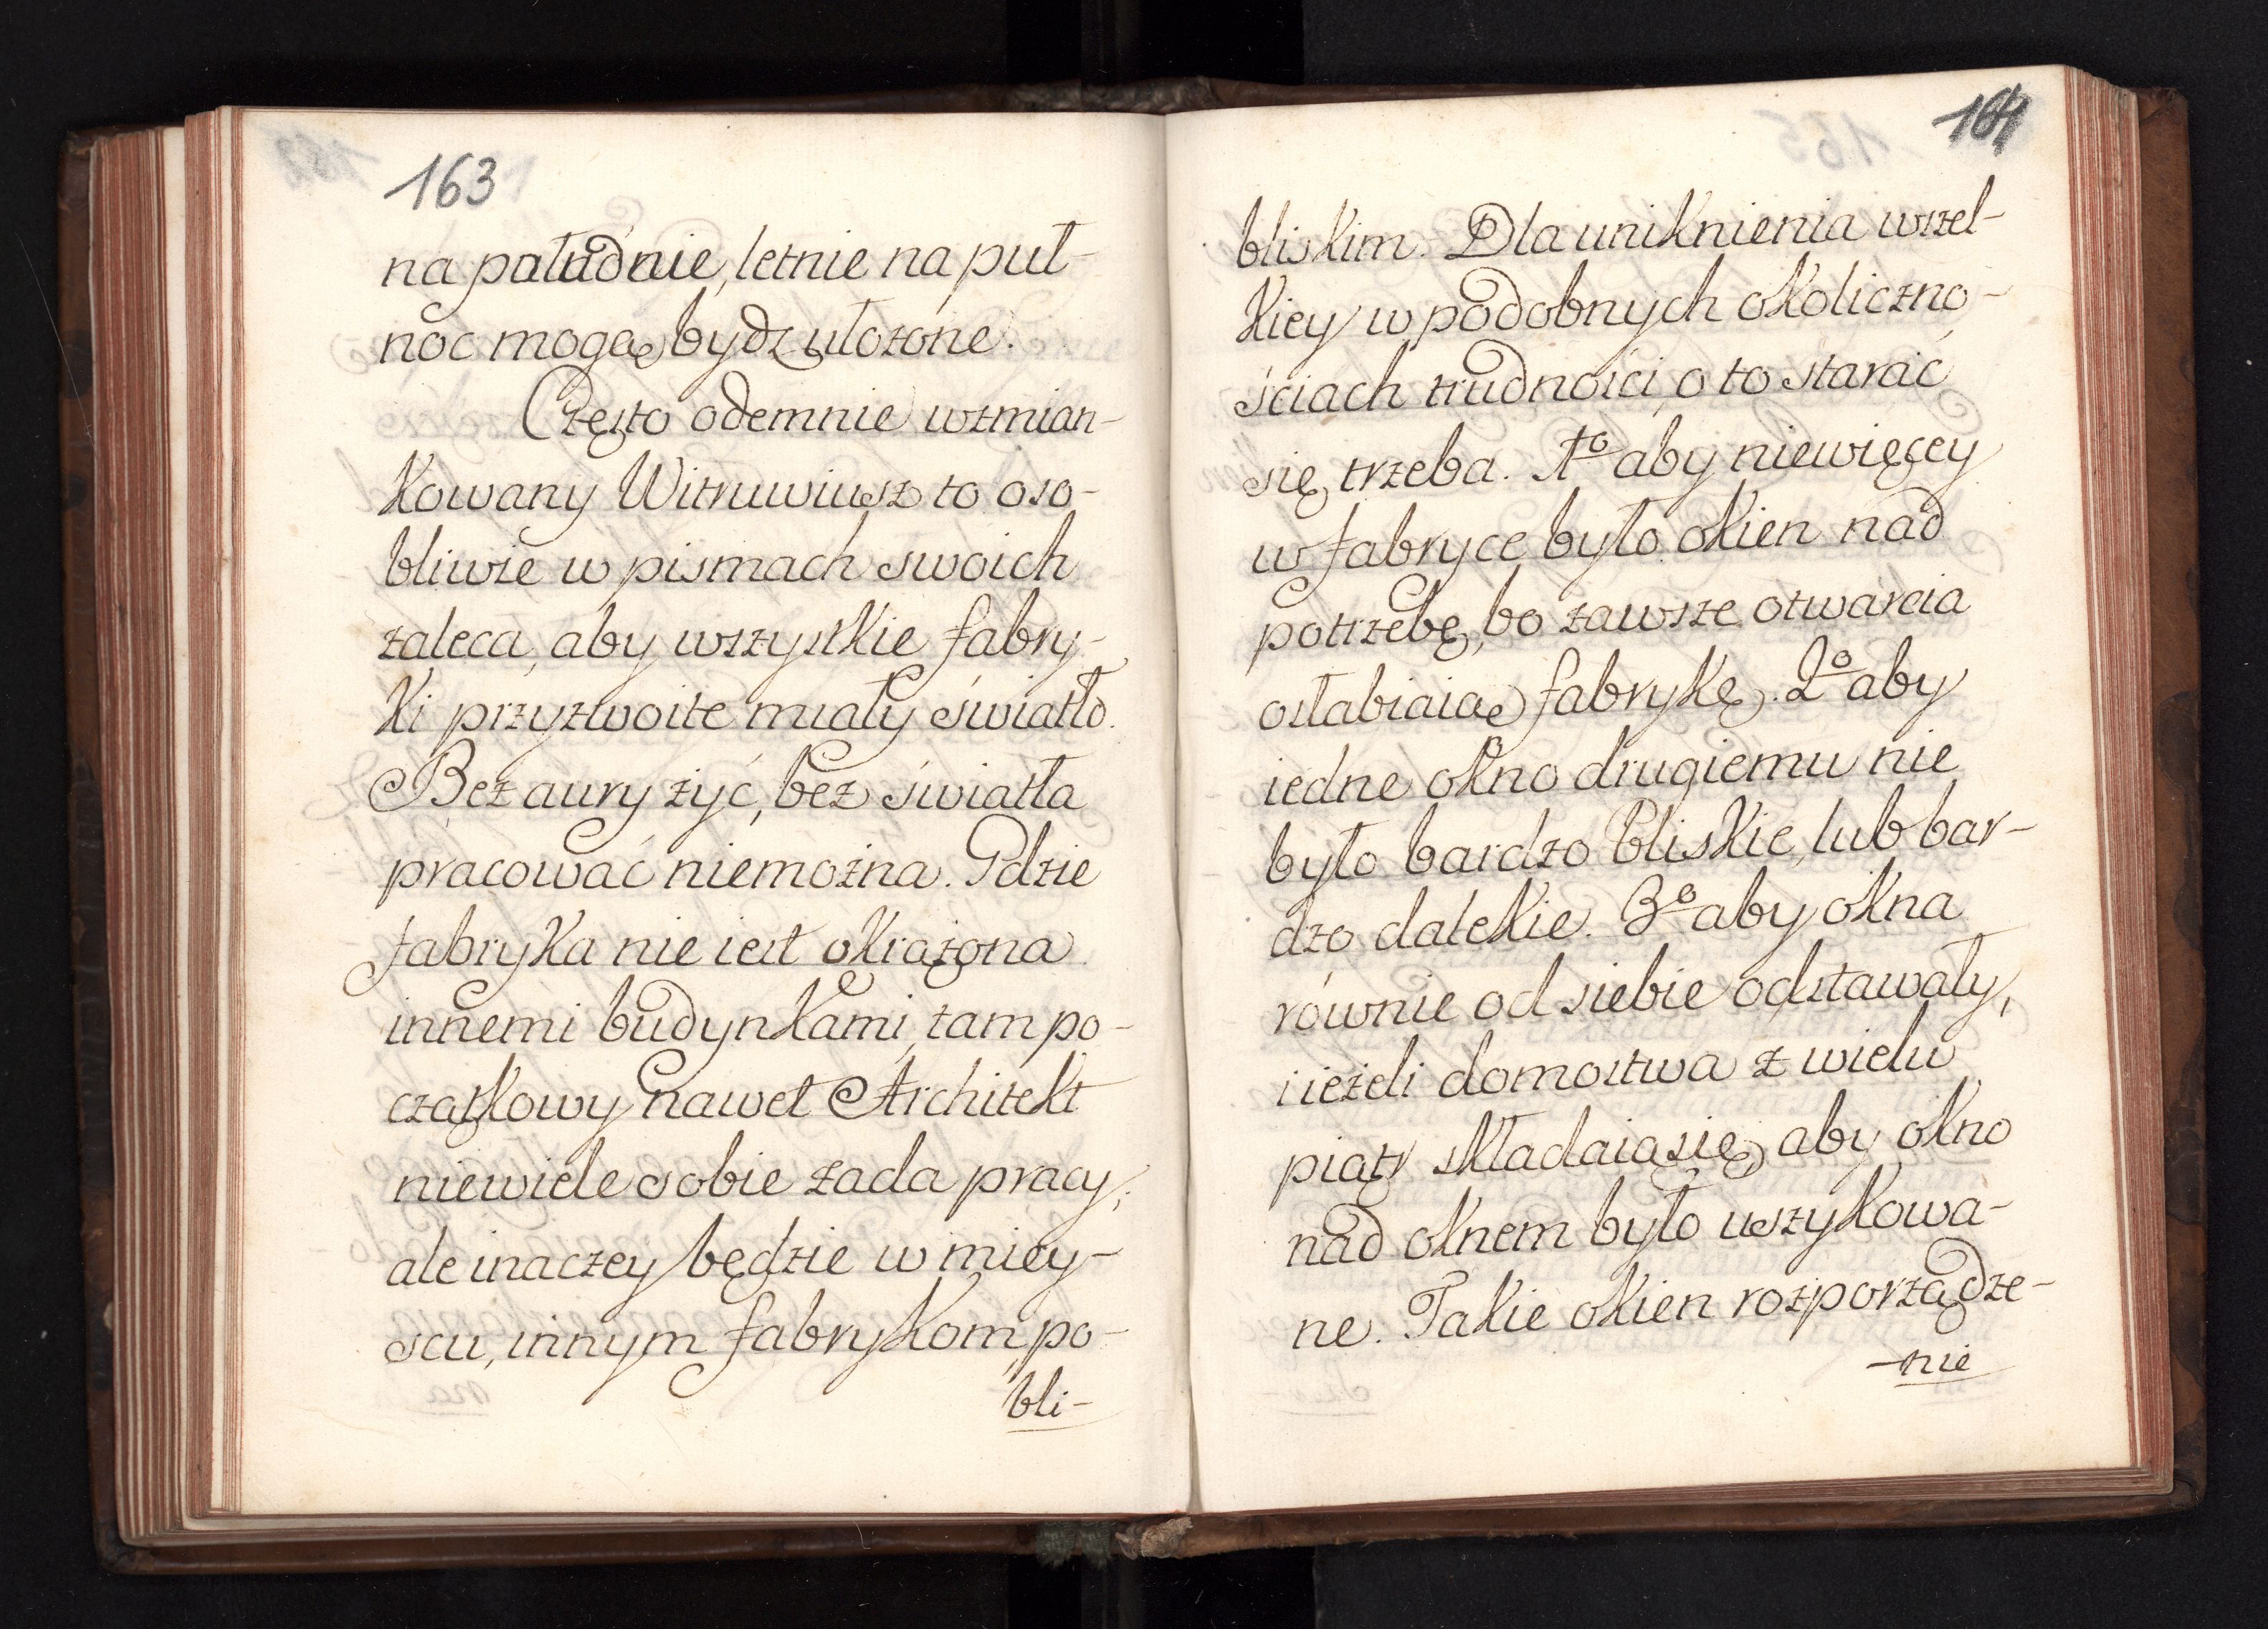 163
na południe, letnie na puł-
noc mogą bydz ułożone.
Często odemnie wzmian-
kowany Witruwiusz to oso-
bliwie w pismach swoich
zaleca, aby wszystkie fabry-
ki przyzwoite miały światło.
Bez aury żyć, bez światła
pracować niemożna. Gdzie
fabryka nie iest okrążona
innemi budynkami, tam po-
czątkowy nawet Architekt
niewiele sobie zada pracy;
ale inaczey będzie w miey-
scu, innym fabrykom po-
bli-
164
bliskim. Dla uniknienia wszel-
kiey w podobnych okoliczno-
ściach trudności, o to starać
się trzeba. 1o aby niewięcey
w fabryce było okien nad
potrzebę, bo zawsze otwarcia
osłabiaią fabrykę. 2o aby
iedne okno drugiemu nie
było bardzo bliskie, lub bar-
dzo dalekie. 3o aby okna
równie od siebie odstawały,
i ieżeli domostwa z wielu
piątr składaią się, aby okno
nad oknem było uszykowa-
ne. Takie okien rozporządze-
-nie